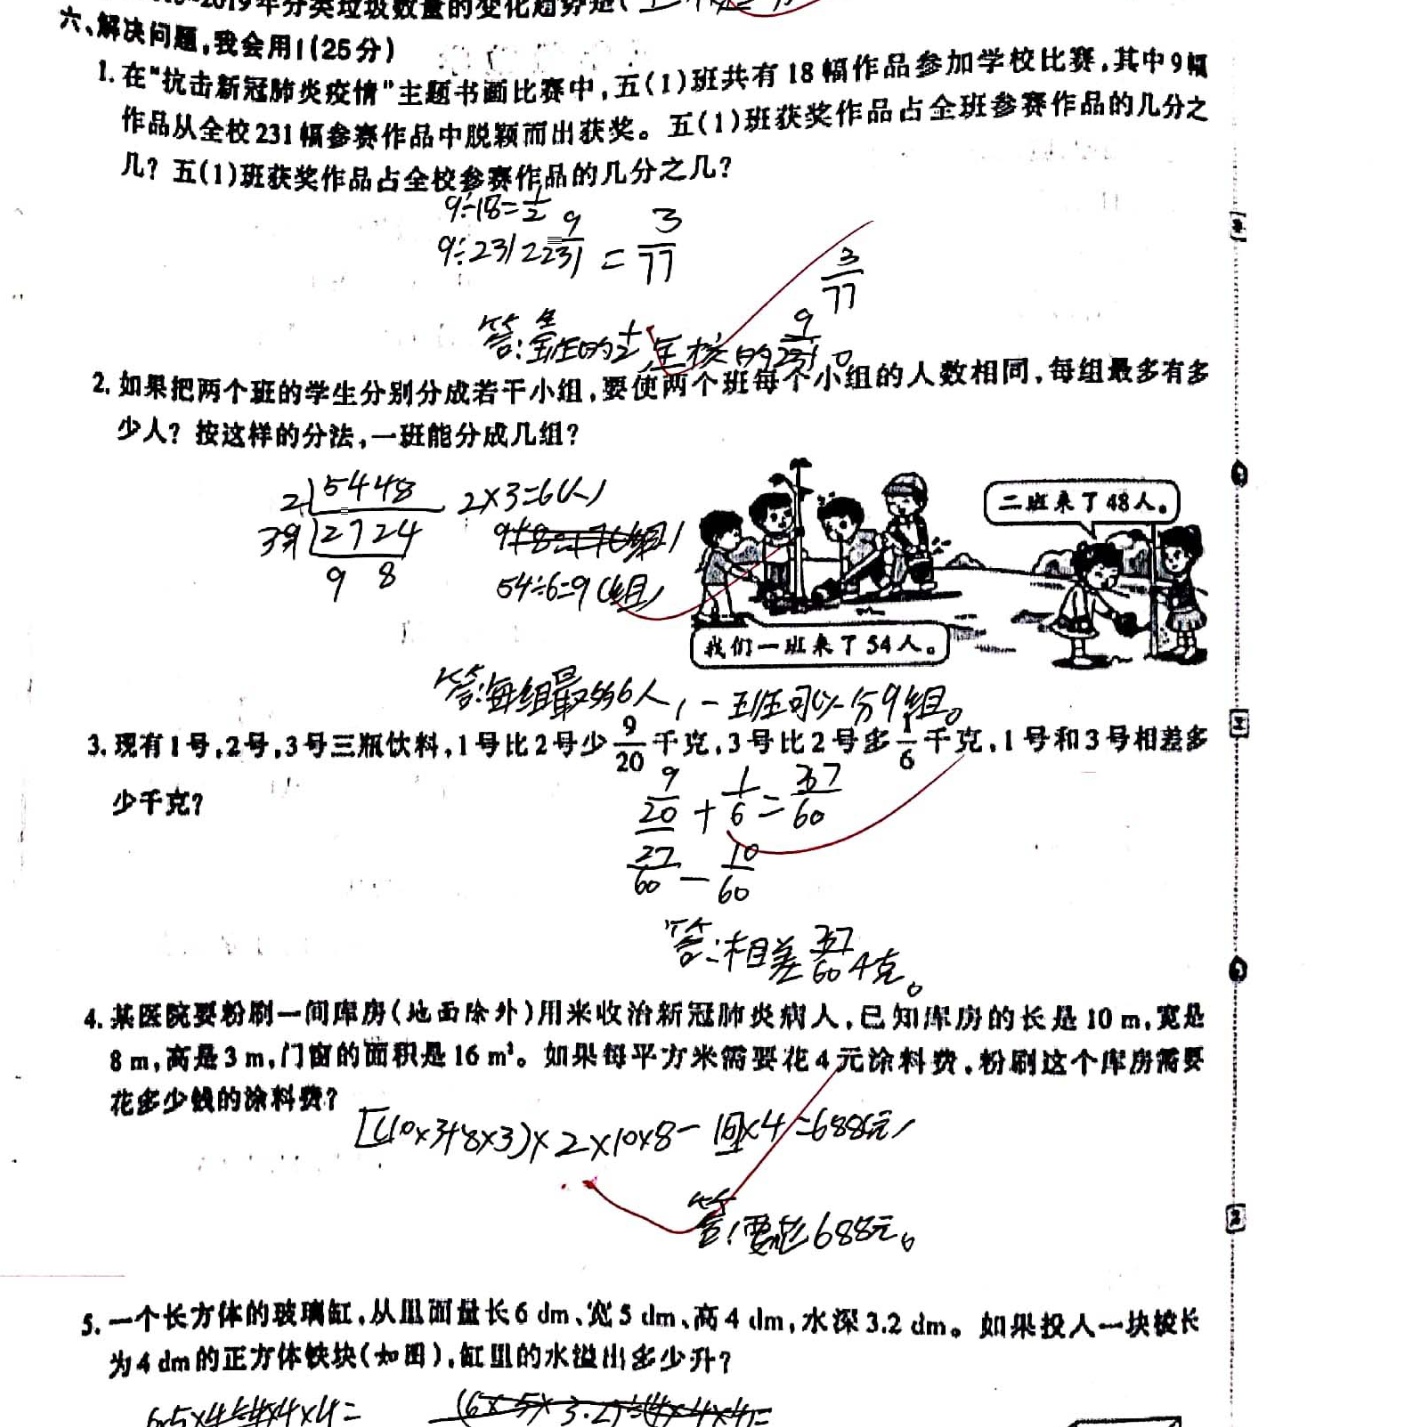 2019年分类垃圾数量的变化趋势是(
六、解决问题,我会用!(25分)
1.在“抗击新冠肺炎疫情”主题书画比赛中,五(1)班共有18幅作品参加学校比赛,其中9幅
作品从全校231幅参赛作品中脱颖而出获奖。五(1)班获奖作品占全班参赛作品的几分之
几?五(1)班获奖作品占全校参赛作品的几分之几?
9÷18=1/2
9÷231=9/231=3/77
3/77
答:全班的1/2,全校的9/231。
2.如果把两个班的学生分别分成若干小组,要使两个班每个小组的人数相同,每组最多有多
少人?按这样的分法,一班能分成几组?
2 54 48 2×3=6(人)
3 27 24
9 8 54÷6=9(组)
二班来了48人。
我们一班来了54人。
答:每组最多6人,一班可以分9组。
3.现有1号,2号,3号三瓶饮料,1号比2号少9/20千克,3号比2号多1/6千克,1号和3号相差多
少千克?
9/20+1/6=37/60
27/60-10/60
答:相差37/60千克。
4.某医院要粉刷一间库房(地面除外)用来收治新冠肺炎病人,已知库房的长是10 m,宽是
8 m,高是3 m,门窗的面积是16 m²。如果每平方米需要花4元涂料费,粉刷这个库房需要
花多少钱的涂料费?
[(10×3+8×3)×2×10×8-16]×4=688(元)
答:要花688元。
5.一个长方体的玻璃缸,从里面量长6 dm、宽5 dm、高4 dm,水深3.2 dm。如果投入一块棱长
为4 dm的正方体铁块(如图),缸里的水溢出多少升?